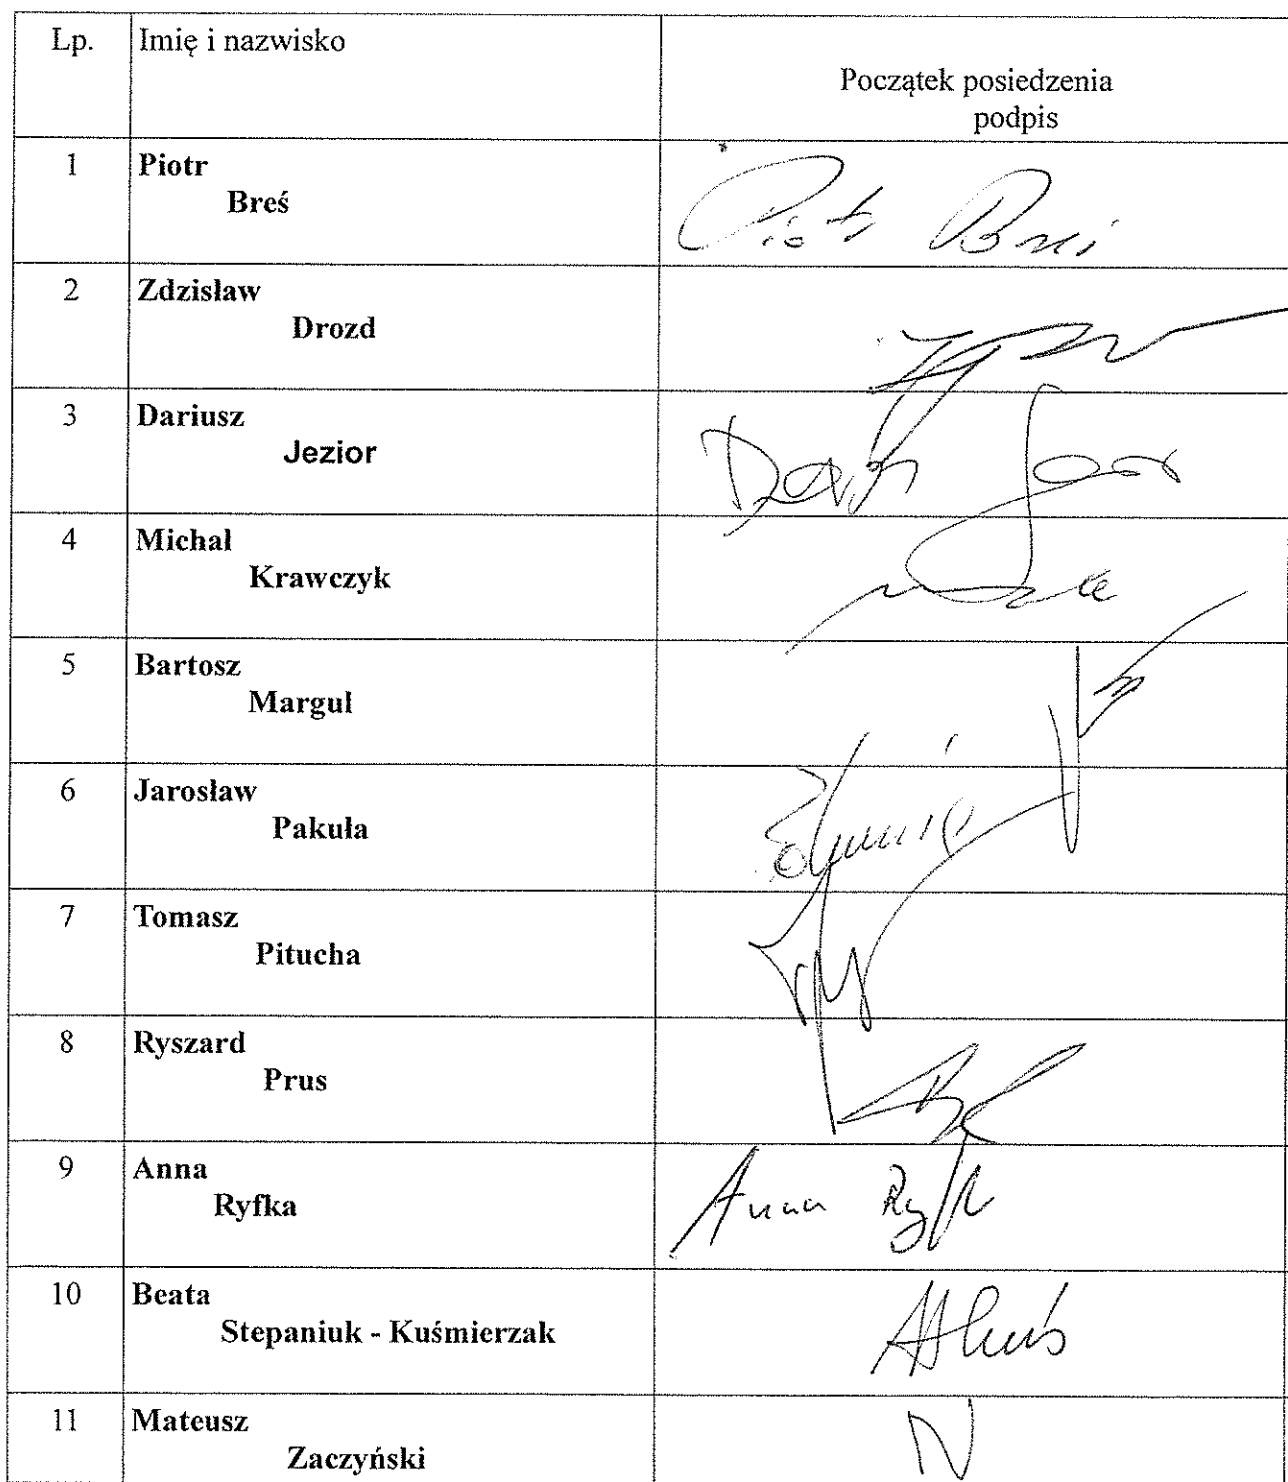 Lp. Imię i nazwisko
Początek posiedzenia
podpis
1 Piotr
Breś
Piotr Breś
2 Zdzisław
Drozd
3 Dariusz
Jezior
4 Michał
Krawczyk
5 Bartosz
Margul
6 Jarosław
Pakuła
7 Tomasz
Pitucha
8 Ryszard
Prus
9 Anna
Ryfka
Anna Ryfk
10 Beata
Stepaniuk - Kuśmierzak
11 Mateusz
Zaczyński
N